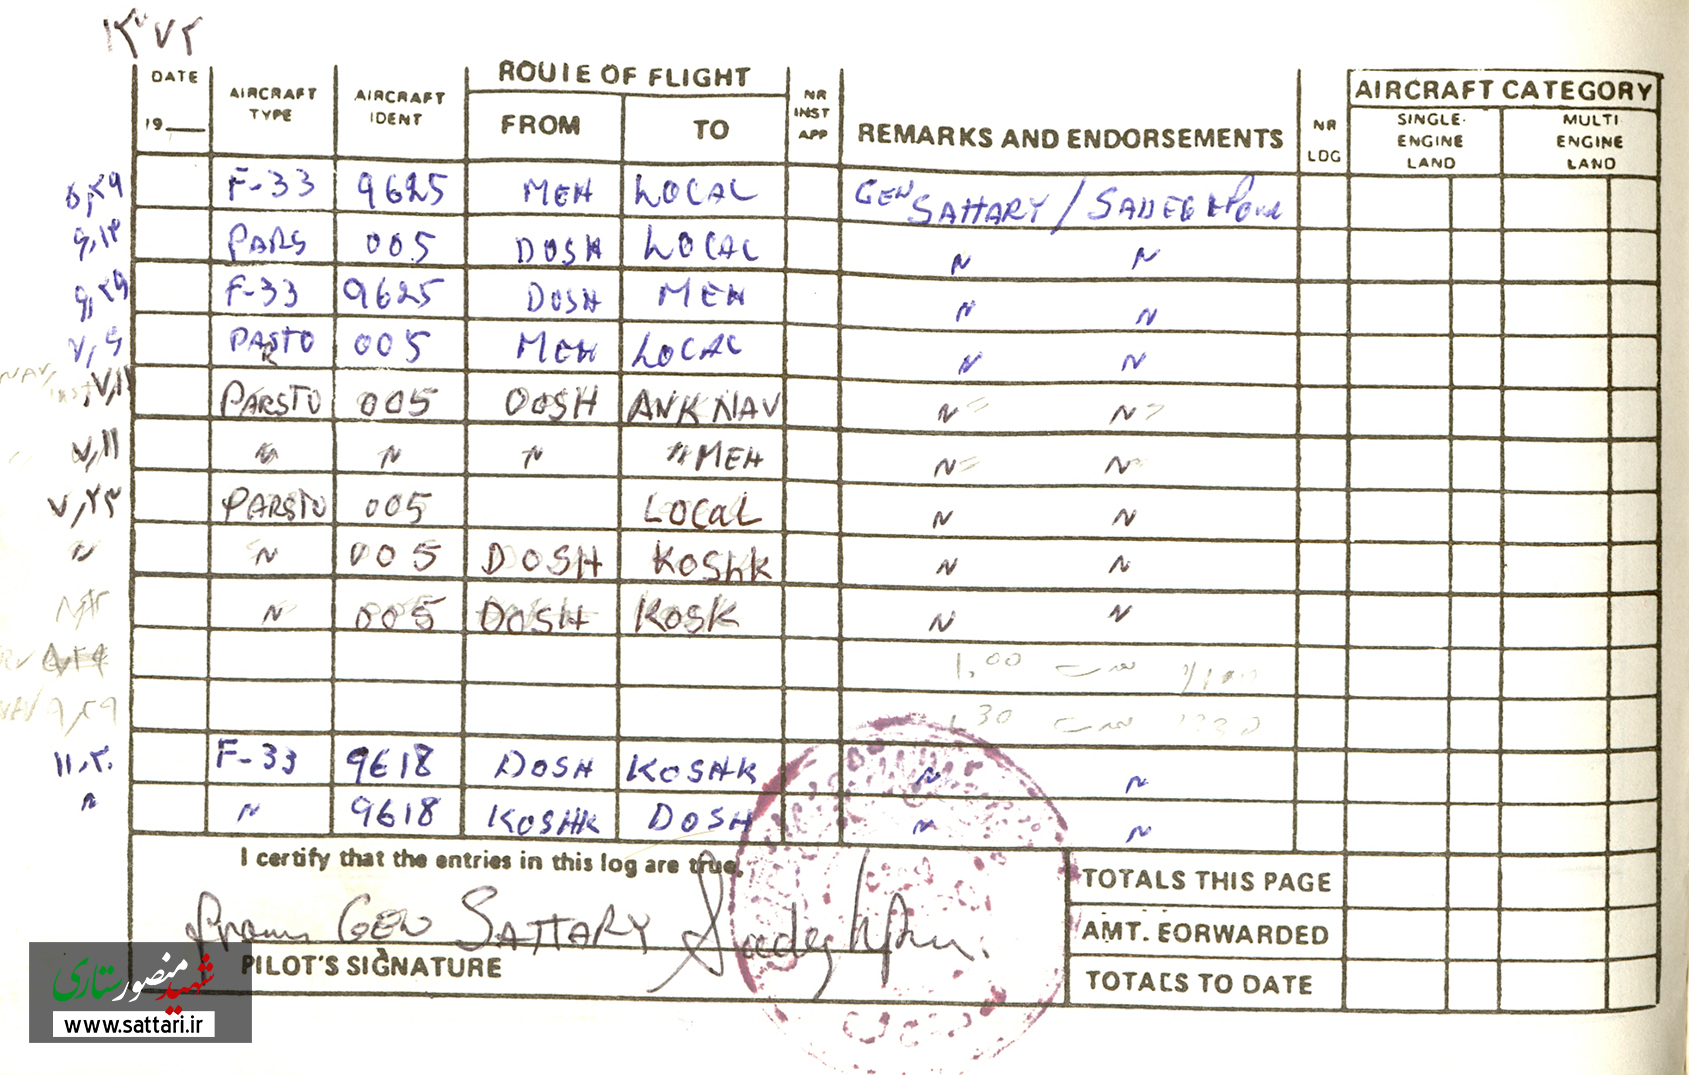 ۱۳۷۲
DATE
19
AIRCRAFT TYPE
AIRCRAFT IDENT
ROUTE OF FLIGHT
FROM
TO
NR INST APP
REMARKS AND ENDORSEMENTS
NR LDG
AIRCRAFT CATEGORY
SINGLE-ENGINE LAND
MULTI ENGINE LAND
۵,۲۹ F-33 9625 MEH LOCAL GEN SATTARY / SADEGHPOUR
۶,۱۳ PARS 005 DOSH LOCAL " "
۶,۲۹ F-33 9625 DOSH MEH " "
۷,۶ PARSTO 005 MEH LOCAL " "
NAV ۷,۱۱ PARSTO 005 DOSH ANK NAV " "
۷,۱۱ " " " " MEH " "
۷,۲۳ PARSTO 005 LOCAL " "
" " 005 DOSH KOSHK " "
" 005 DOSH KOSK " "
1,00
۹,۲۹ 1,30
۱۱,۲۰ F-33 9618 DOSH KOSHK " "
" " 9618 KOSHK DOSH " "
I certify that the entries in this log are true.
from GEN SATTARY Sadeghpour.
PILOT'S SIGNATURE
TOTALS THIS PAGE
AMT. FORWARDED
TOTALS TO DATE
شهید منصور ستاری
www.sattari.ir